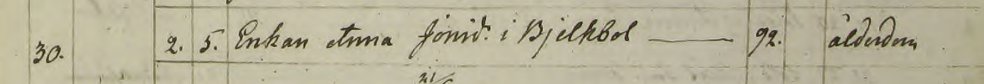 30. 2. 5. Enkan Anna Jönsd: i Bjelkbol —— 92. ålderdom
31/